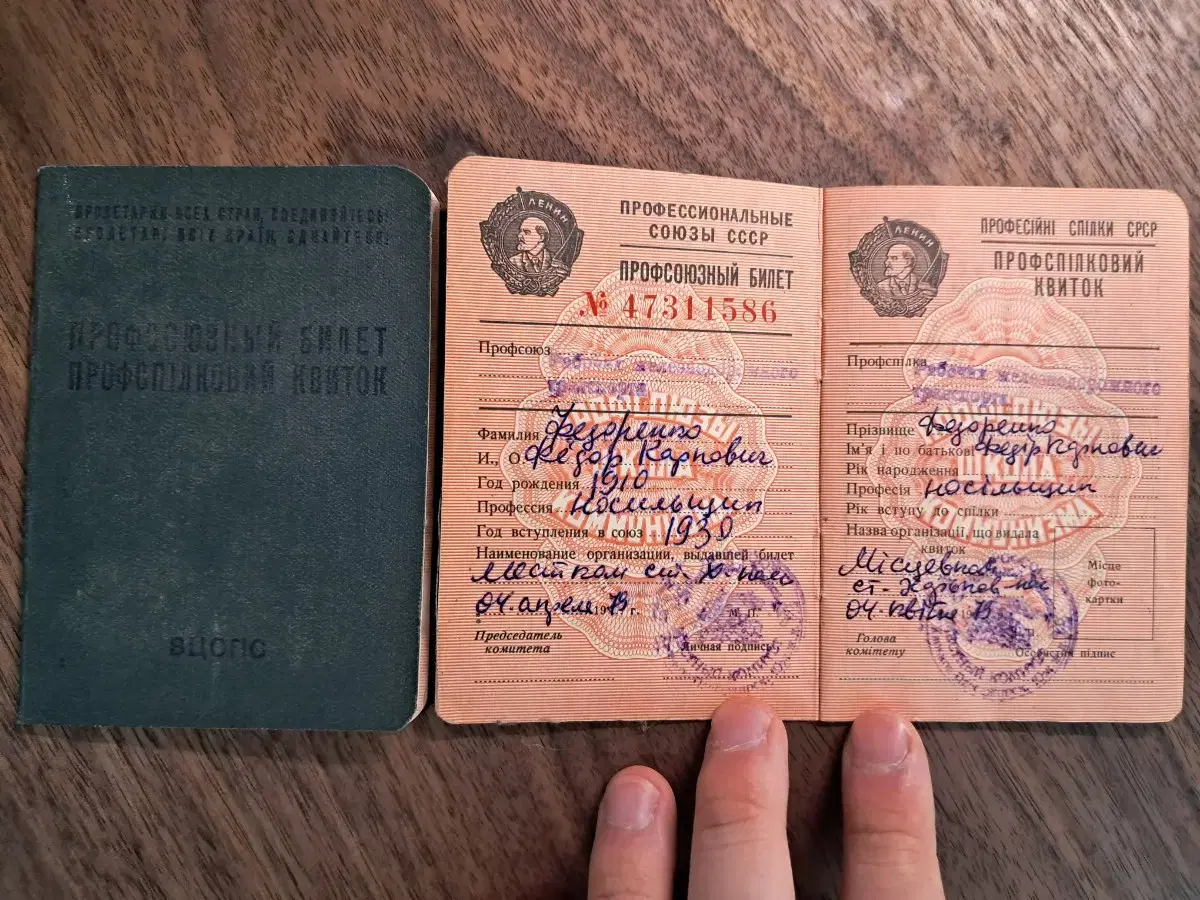 ПРОЛЕТАРИИ ВСЕХ СТРАН, СОЕДИНЯЙТЕСЬ!
ПРОЛЕТАРІ ВСІХ КРАЇН, ЄДНАЙТЕСЯ!
ПРОФСОЮЗНЫЙ БИЛЕТ
ПРОФСПІЛКОВИЙ КВИТОК
ВЦСПС
ЛЕНИН
ПРОФЕССИОНАЛЬНЫЕ
СОЮЗЫ СССР
ПРОФСОЮЗНЫЙ БИЛЕТ
№ 47311586
Профсоюз рабочих железнодорожного
транспорта
ПРОФСОЮЗЫ
ШКОЛА
КОММУНИЗМА
Фамилия Федоренко
И., О. Федор Карпович
Год рождения 1910
Профессия носильщик
Год вступления в союз 1930
Наименование организации, выдавшей билет
Местком ст.
04 апреля 1973 г.
М. П.
Председатель
комитета
Личная подпись
ЛЕНИН
ПРОФЕСІЙНІ СПІЛКИ СРСР
ПРОФСПІЛКОВИЙ
КВИТОК
Профспілка рабочих железнодорожного
транспорта
ПРОФСОЮЗЫ
ШКОЛА
КОММУНИЗМА
Прізвище Федоренко
Ім'я і по батькові Федір Карпович
Рік народження
Професія носільщик
Рік вступу до спілки
Назва організації, що видала
квиток
Місцевком
ст. Харьков
04 квітня 73
Місце
фото-
картки
Голова
комітету
Особистий підпис